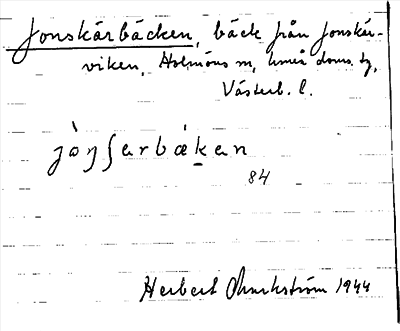 Jonskärbäcken, bäck från Jonskär-
viken, Holmöns sn, Umeå doms. tg,
Västerb. l.
jòŋʃərbækən
84
Herbert Markström 1944